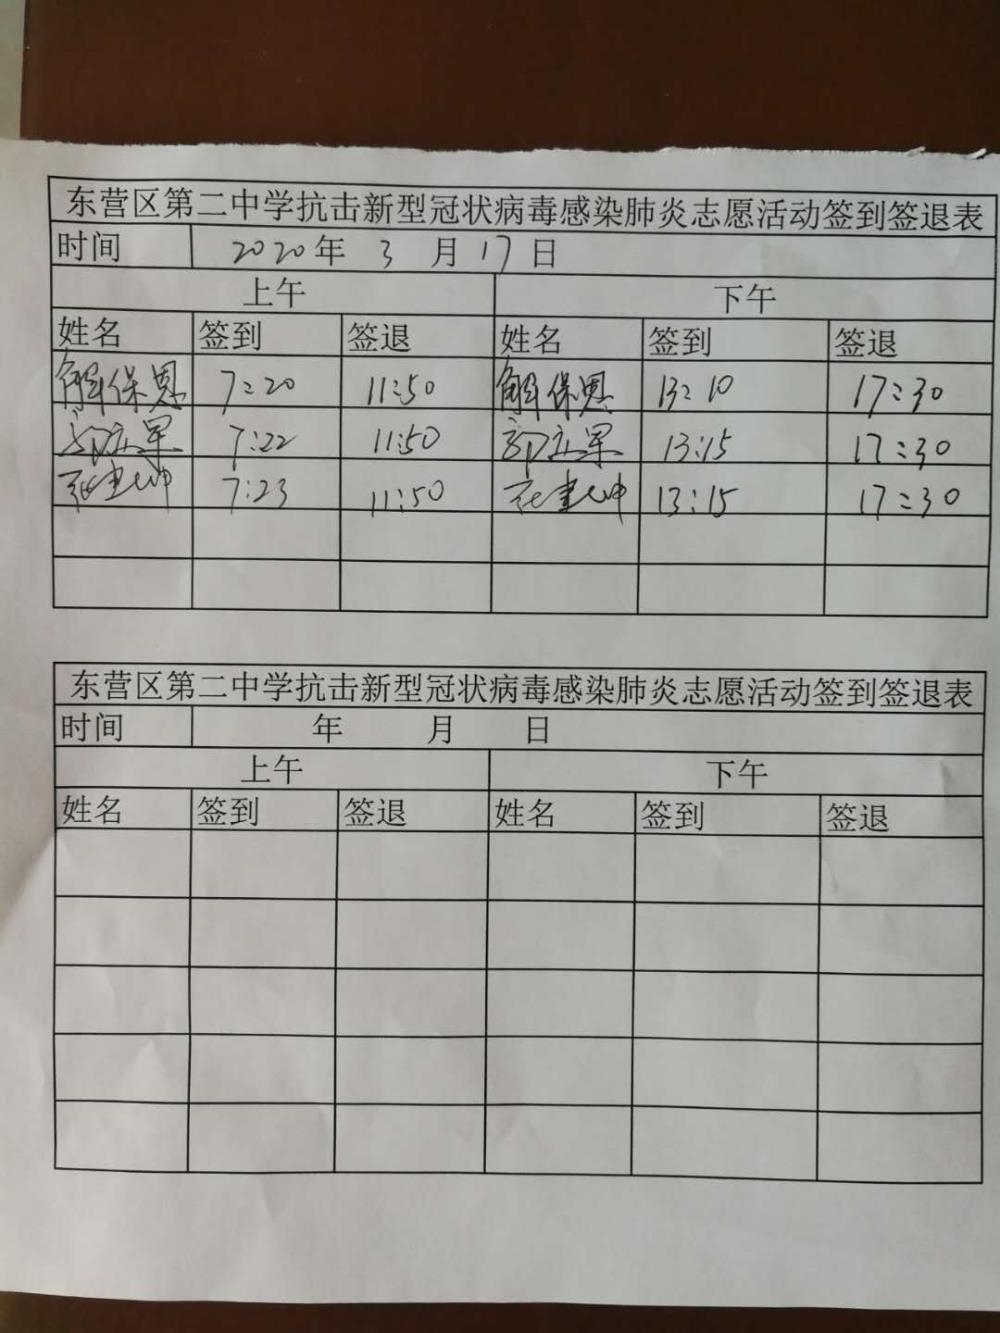 东营区第二中学抗击新型冠状病毒感染肺炎志愿活动签到签退表
时间 2020年 3 月 17 日
上午 下午
姓名 签到 签退 姓名 签到 签退
解保恩 7:20 11:50 解保恩 13:10 17:30
郭立军 7:22 11:50 郭立军 13:15 17:30
张建坤 7:23 11:50 张建坤 13:15 17:30
东营区第二中学抗击新型冠状病毒感染肺炎志愿活动签到签退表
时间 年 月 日
上午 下午
姓名 签到 签退 姓名 签到 签退